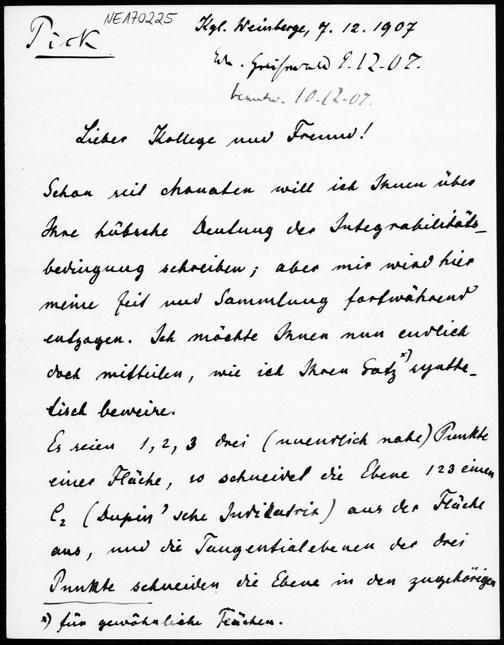 NEA70225
Pick
Kgl. Weinberge, 7.12.1907
Erh. Greifswald 9.12.07.
beantw. 10.12.07.
Lieber Kollege und Freund!
Schon seit Monaten will ich Ihnen über
Ihre hübsche Deutung der Integrabilitäts-
bedingung schreiben; aber mir wird hier
meine Zeit und Sammlung fortwährend
entzogen. Ich möchte Ihnen nun endlich
doch mitteilen, wie ich Ihren Satz *) synthe-
tisch beweise.
Es seien 1, 2, 3 drei (unendlich nahe) Punkte
einer Fläche, so schneidet die Ebene 123 einen
C₂ (Dupin'sche Indikatrix) aus der Fläche
aus, und die Tangentialebenen der drei
Punkte schneiden die Ebene in den zugehörigen
*) für gewöhnliche Flächen.